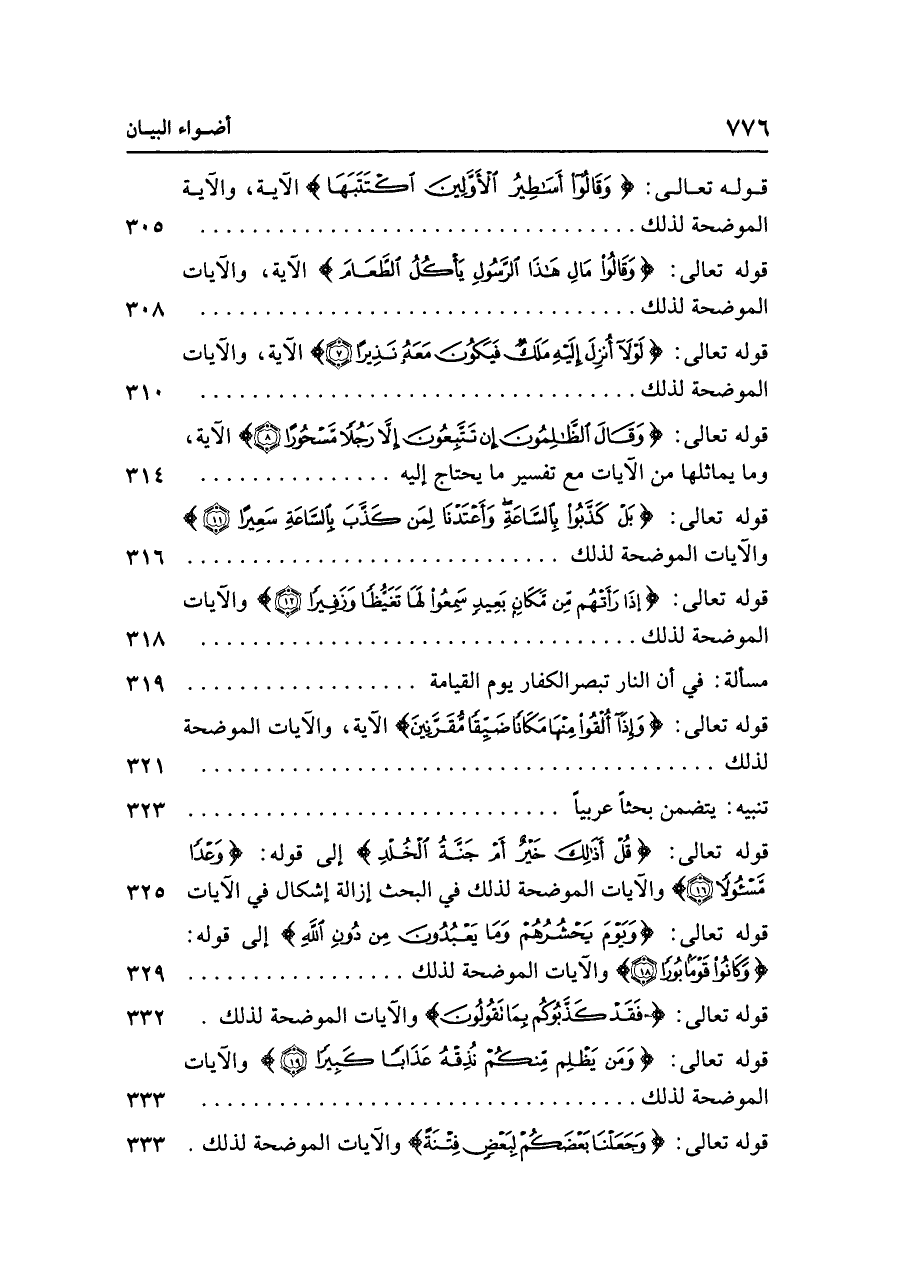 ٧٧٦ أضواء البيان
قوله تعالى: ﴿ وَقَالُوٓا۟ أَسَٰطِيرُ ٱلْأَوَّلِينَ ٱكْتَتَبَهَا ﴾ الآية، والآية
الموضحة لذلك . . . . . . . . . . . . . . . . . . . . . . . . . . . . . . . . . . ٣٠٥
قوله تعالى: ﴿ وَقَالُوا۟ مَالِ هَٰذَا ٱلرَّسُولِ يَأْكُلُ ٱلطَّعَامَ ﴾ الآية، والآيات
الموضحة لذلك . . . . . . . . . . . . . . . . . . . . . . . . . . . . . . . . . . ٣٠٨
قوله تعالى: ﴿ لَوْلَآ أُنزِلَ إِلَيْهِ مَلَكٌ فَيَكُونَ مَعَهُۥ نَذِيرًا ٧ ﴾ الآية، والآيات
الموضحة لذلك . . . . . . . . . . . . . . . . . . . . . . . . . . . . . . . . . . ٣١٠
قوله تعالى: ﴿ وَقَالَ ٱلظَّٰلِمُونَ إِن تَتَّبِعُونَ إِلَّا رَجُلًا مَّسْحُورًا ٨ ﴾ الآية،
وما يماثلها من الآيات مع تفسير ما يحتاج إليه . . . . . . . . . . . . . . . ٣١٤
قوله تعالى: ﴿ بَلْ كَذَّبُوا۟ بِٱلسَّاعَةِ ۖ وَأَعْتَدْنَا لِمَن كَذَّبَ بِٱلسَّاعَةِ سَعِيرًا ١١ ﴾
والآيات الموضحة لذلك . . . . . . . . . . . . . . . . . . . . . . . . . . . . . ٣١٦
قوله تعالى: ﴿ إِذَا رَأَتْهُم مِّن مَّكَانٍ بَعِيدٍ سَمِعُوا۟ لَهَا تَغَيُّظًا وَزَفِيرًا ١٢ ﴾ والآيات
الموضحة لذلك . . . . . . . . . . . . . . . . . . . . . . . . . . . . . . . . . . ٣١٨
مسألة: في أن النار تبصر الكفار يوم القيامة . . . . . . . . . . . . . . . . . . ٣١٩
قوله تعالى: ﴿ وَإِذَآ أُلْقُوا۟ مِنْهَا مَكَانًا ضَيِّقًا مُّقَرَّنِينَ ﴾ الآية، والآيات الموضحة
لذلك . . . . . . . . . . . . . . . . . . . . . . . . . . . . . . . . . . . . . . . . ٣٢١
تنبيه: يتضمن بحثاً عربياً . . . . . . . . . . . . . . . . . . . . . . . . . . . . . ٣٢٣
قوله تعالى: ﴿ قُلْ أَذَٰلِكَ خَيْرٌ أَمْ جَنَّةُ ٱلْخُلْدِ ﴾ إلى قوله: ﴿ وَعْدًا
مَّسْـُٔولًا ١٦ ﴾ والآيات الموضحة لذلك في البحث إزالة إشكال في الآيات ٣٢٥
قوله تعالى: ﴿ وَيَوْمَ يَحْشُرُهُمْ وَمَا يَعْبُدُونَ مِن دُونِ ٱللَّهِ ﴾ إلى قوله:
﴿ وَكَانُوا۟ قَوْمًۢا بُورًا ١٨ ﴾ والآيات الموضحة لذلك . . . . . . . . . . . . . . . . . ٣٢٩
قوله تعالى: ﴿ فَقَدْ كَذَّبُوكُم بِمَا تَقُولُونَ ﴾ والآيات الموضحة لذلك . ٣٣٢
قوله تعالى: ﴿ وَمَن يَظْلِم مِّنكُمْ نُذِقْهُ عَذَابًا كَبِيرًا ١٩ ﴾ والآيات
الموضحة لذلك . . . . . . . . . . . . . . . . . . . . . . . . . . . . . . . . . . ٣٣٣
قوله تعالى: ﴿ وَجَعَلْنَا بَعْضَكُمْ لِبَعْضٍ فِتْنَةً ﴾ والآيات الموضحة لذلك . ٣٣٣